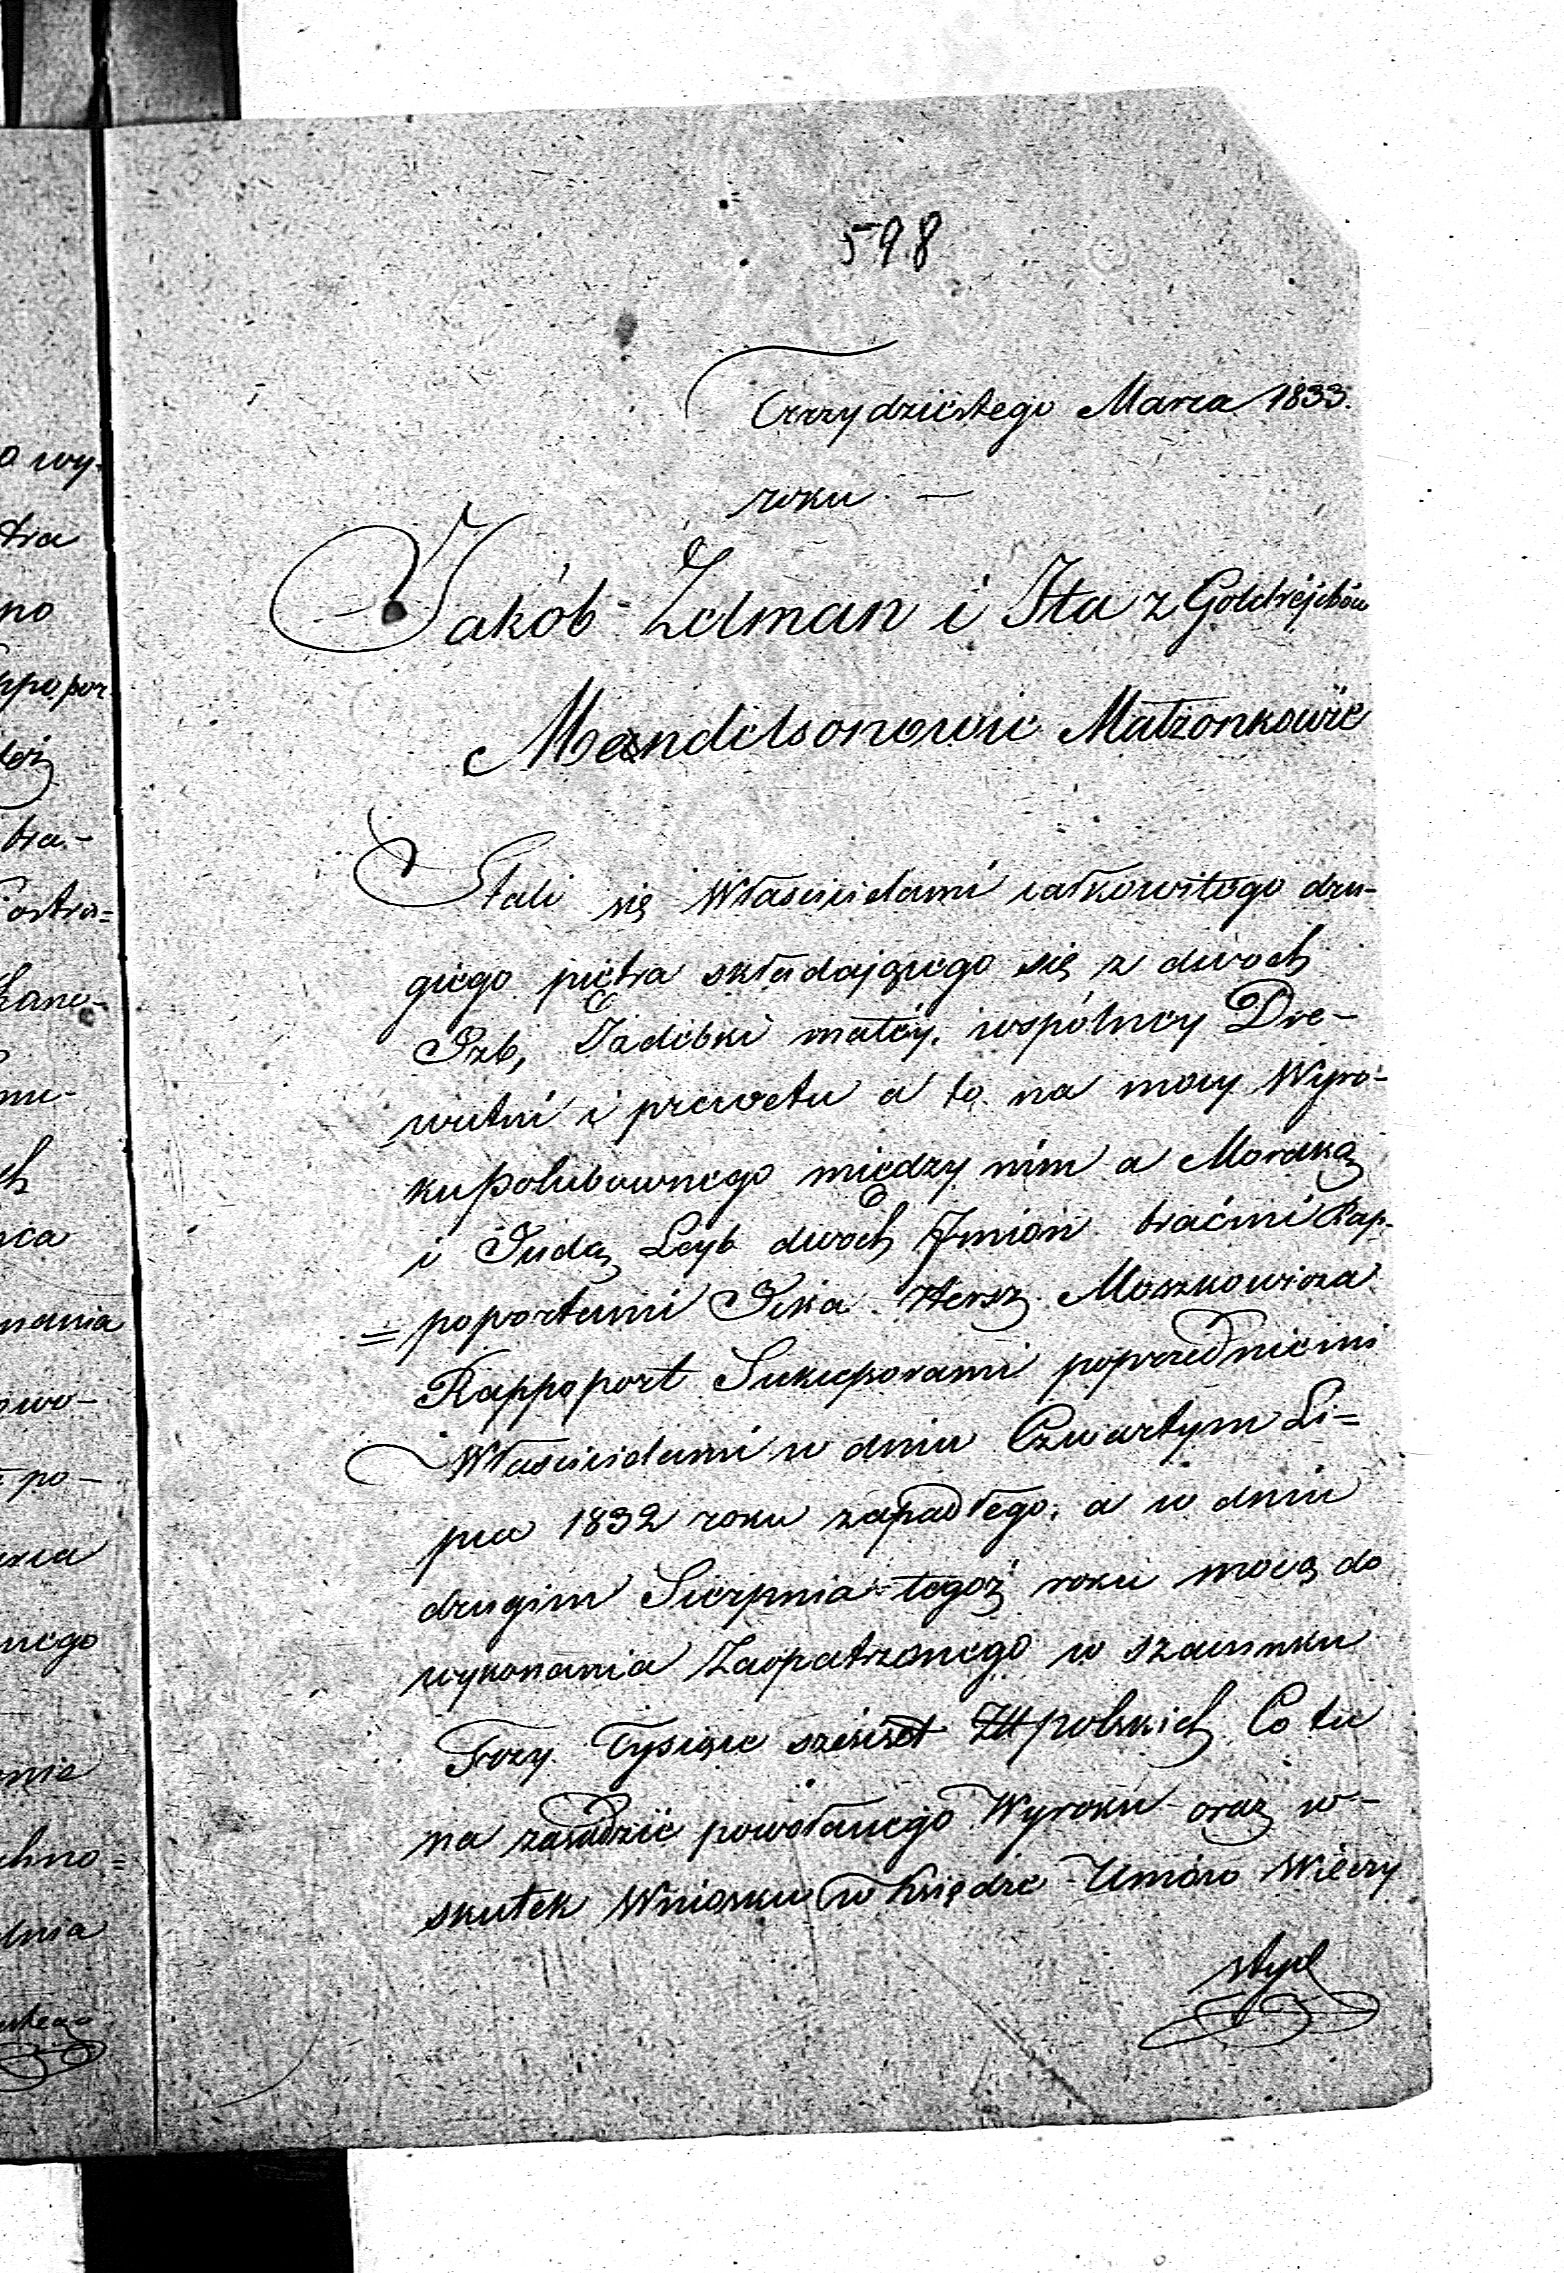 598
Trzydziestego Marca 1833.
roku. —
Jakób Zelman i Itta z Goldrejchów
Mandelsonowie Małżonkowie
Stali się Właścicielami całkowitego dru-
giego piętra składającego się z dwoch
Izb, Izdebki małéy, wspólney Dre-
wutni i prewetu a to na mocy Wyro-
ku polubownego między nim a Mordką
i Judą Leyb dwoch Jmion braćmi Rap-
= poportami Icka Hersz Moszkowicza
Rappoport Sukcessorami poprzedniemi
Właścicielami w dniu Czwartym Li=
pca 1832 roku zapadłego, a w dniu
drugim Sierpnia tegoż roku mocą do
wykonania Zaopatrzonego w szacunku
Trzy Tysiące sześcset Złł polskich Co tu
na zasadzie powołanego Wyroku oraz w-
skutek Wniosku w księdze Umów Wieczy
stych
o wy-
tra
no
ppopor
też
bra-
ostra=
ch
nania
owo-
po-
nego
chno=
dnia